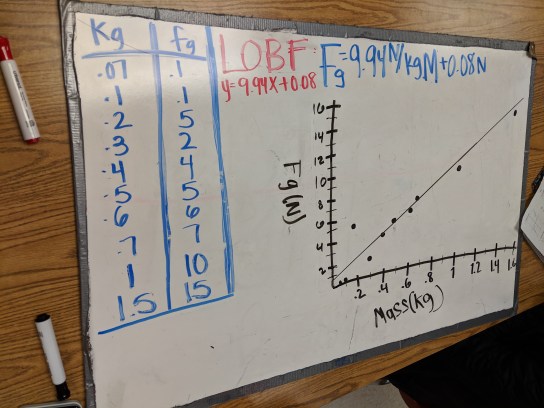 Kg fg
.07 .1
.1 .1
.2 5
.3 2
.4 4
.5 5
.6 6
.7 7
1 10
1.5 15
LOBF:
y=9.94x+0.08
Fg=9.94N/kgM+0.08N
Fg(N)
16
14
12
10
8
6
4
2
.2 .4 .6 .8 1 1.2 1.4 1.6
Mass(kg)